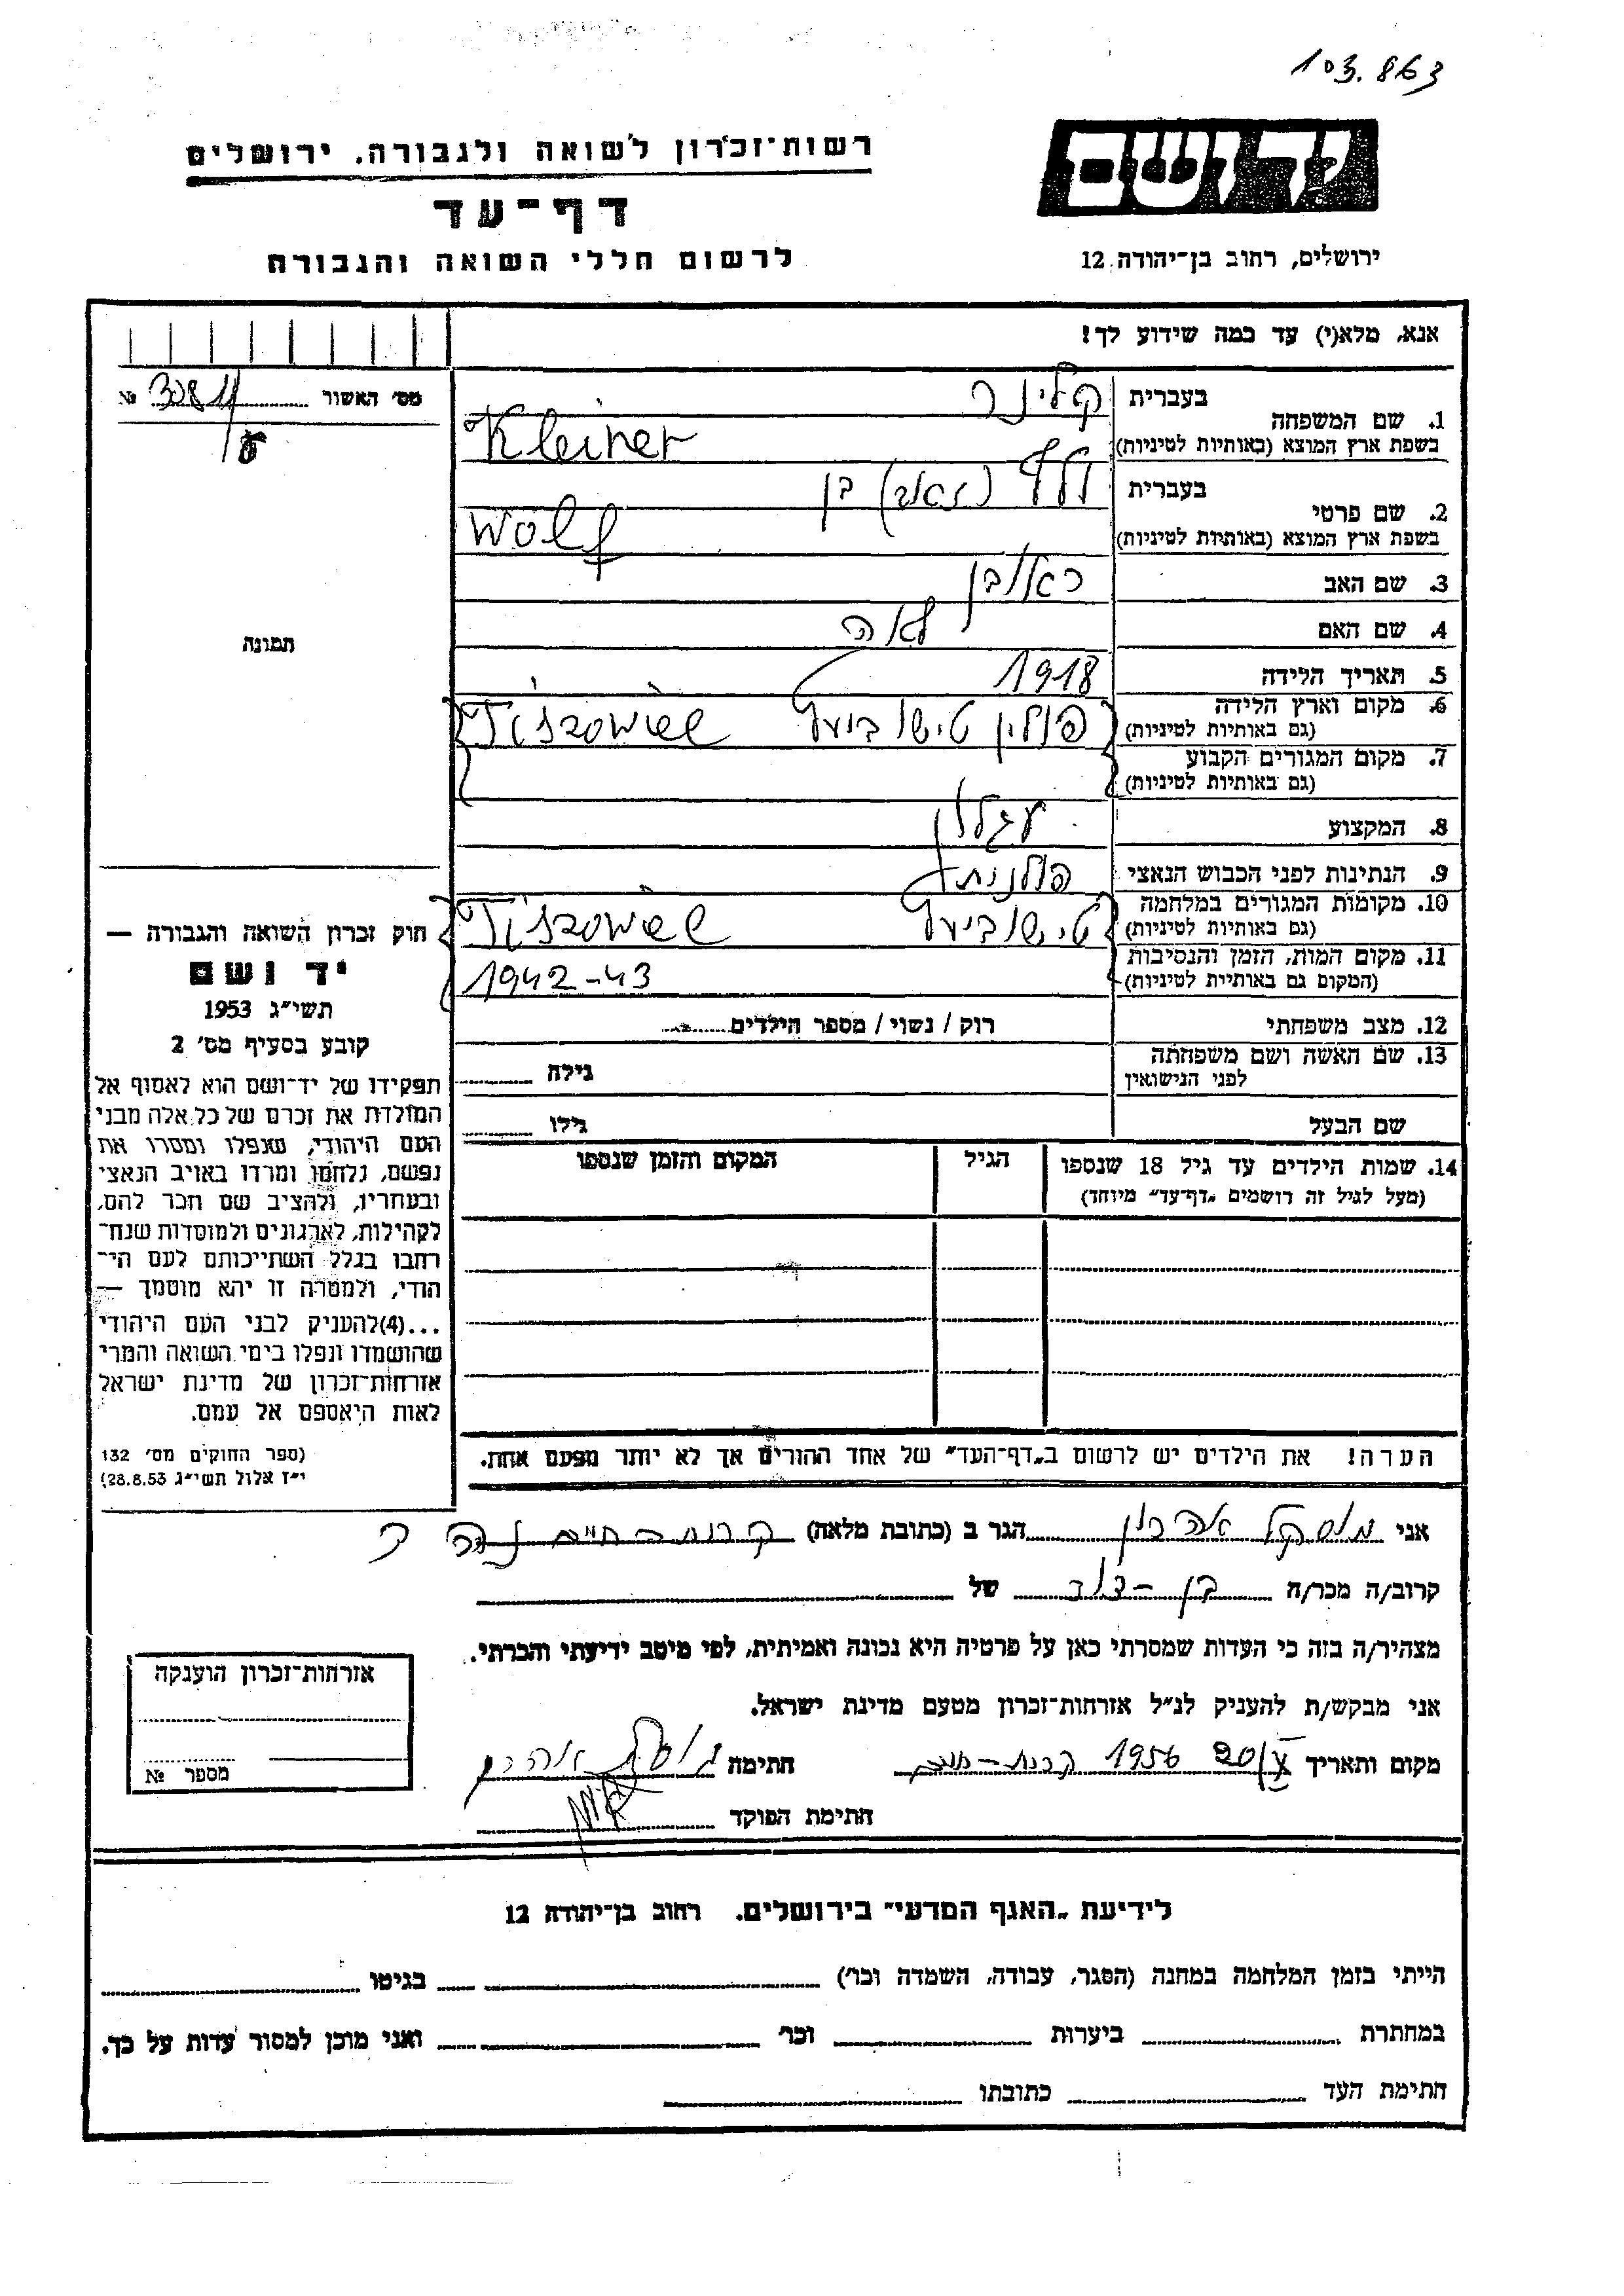 103.863
יד ושם
רשות־זכרון לשואה ולגבורה. ירושלים
דף־עד
ירושלים, רחוב בן־יהודה 12
לרשום חללי השואה והגבורה
אנא, מלא(י) עד כמה שידוע לך!
מס׳ האשור № 30811
1. שם המשפחה
בעברית קלינר
בשפת ארץ המוצא (באותיות לטיניות) Kleiner
2. שם פרטי
בעברית וולף (זאב) בן
בשפת ארץ המוצא (באותיות לטיניות) Wolf
3. שם האב ראובן
4. שם האם לאה
תמונה
5. תאריך הלידה 1918
6. מקום וארץ הלידה
(גם באותיות לטיניות) פולין
7. מקום המגורים הקבוע
(גם באותיות לטיניות)
8. המקצוע עגלון
9. הנתינות לפני הכבוש הנאצי פולנית
10. מקומות המגורים במלחמה
(גם באותיות לטיניות)
11. מקום המות, הזמן והנסיבות
(המקום גם באותיית לטיניות) 1942-43
12. מצב משפחתי רוק / נשוי / מספר הילדים
13. שם האשה ושם משפחתה
לפני הנישואין גילה
שם הבעל גילו
14. שמות הילדים עד גיל 18 שנספו
(מעל לגיל זה רושמים „דף־עד״ מיוחד)
הגיל
המקום והזמן שנספו
חוק זכרון השואה והגבורה —
יד ושם
תשי״ג 1953
קובע בסעיף מס׳ 2
תפקידו של יד־ושם הוא לאסוף אל
המולדת את זכרם של כל אלה מבני
העם היהודי, שנפלו ומסרו את
נפשם, נלחמו ומרדו באויב הנאצי
ובעוזריו, ולהציב שם וזכר להם,
לקהילות, לארגונים ולמוסדות שנח־
רבו בגלל השתייכותם לעם הי־
הודי, ולמטרה זו יהא מוסמך —
...(4)להעניק לבני העם היהודי
שהושמדו ונפלו בימי השואה והמרי
אזרחות־זכרון של מדינת ישראל
לאות היאספם אל עמם.
(ספר החוקים מס׳ 132
י״ז אלול תשי״ג 28.8.53)
הערה! את הילדים יש לרשום ב„דף־העד״ של אחד ההורים אך לא יותר מפעם אחת.
אני אהרון הגר ב (כתובת מלאה) קרית חיים
קרוב/ה מכר/ה בן-דוד של
מצהיר/ה בזה כי העדות שמסרתי כאן על פרטיה היא נכונה ואמיתית, לפי מיטב ידיעתי והכרתי.
אני מבקש/ת להעניק לנ״ל אזרחות־זכרון מטעם מדינת ישראל.
מקום ותאריך 1956 חתימה
חתימת הפוקד
אזרחות־זכרון הוענקה
מספר №
לידיעת „האגף המדעי״ בירושלים. רחוב בן־יהודה 12
הייתי בזמן המלחמה במחנה (הסגר, עבודה, השמדה וכו׳) בגיטו
במחתרת ביערות וכו׳ ואני מוכן למסור עדות על כך.
חתימת העד כתובתו